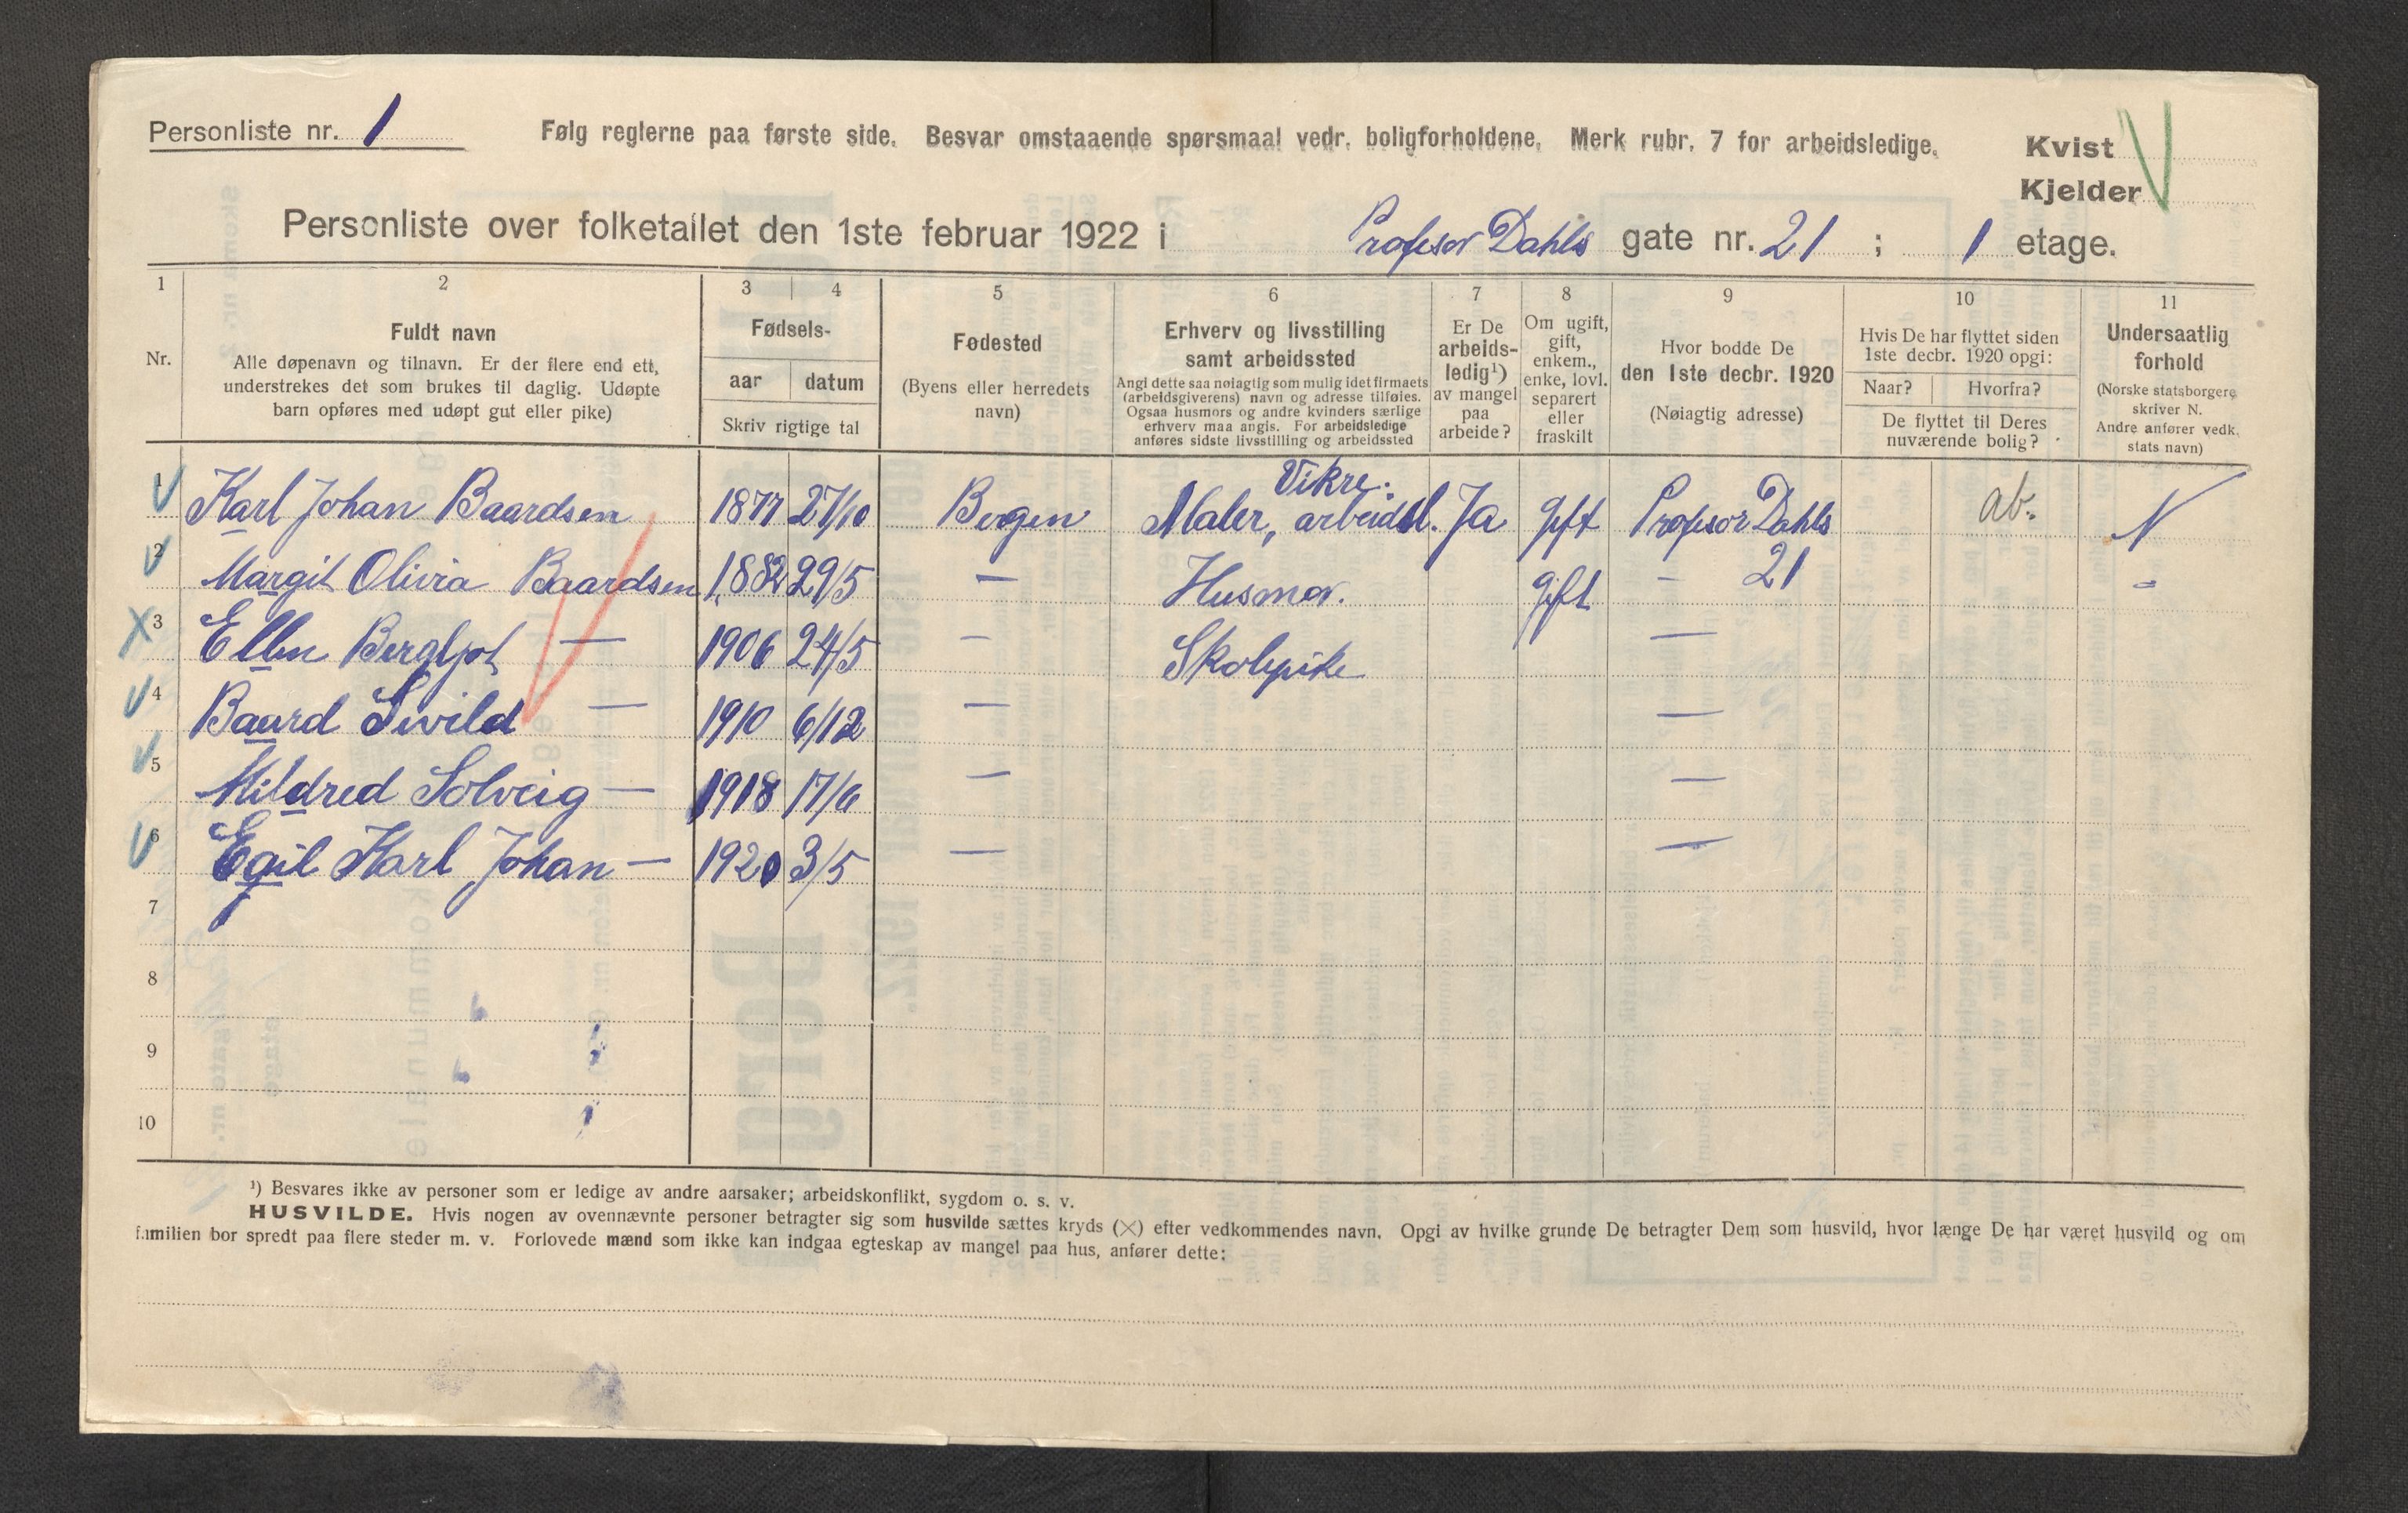 Personliste nr. 1
Følg reglerne paa første side. Besvar omstaaende spørsmaal vedr. boligforholdene. Merk rubr. 7 for arbeidsledige.
Kvist
Kjelder
Personliste over folketallet den 1ste februar 1922 i Profesor Dahls gate nr. 21 ; 1 etage.
1 2 3 4 5 6 7 8 9 10 11
Nr.
Fuldt navn
Alle døpenavn og tilnavn. Er der flere end ett,
understrekes det som brukes til daglig. Udøpte
barn opføres med udøpt gut eller pike)
Fødsels-
aar datum
Skriv rigtige tal
Fødested
(Byens eller herredets
navn)
Erhverv og livsstilling
samt arbeidssted
Angi dette saa nøiagtig som mulig idet firmaets
(arbeidsgiverens) navn og adresse tilføies.
Ogsaa husmors og andre kvinders særlige
erhverv maa angis. For arbeidsledige
anføres sidste livsstilling og arbeidssted
Er De
arbeids-
ledig¹)
av mangel
paa
arbeide?
Om ugift,
gift,
enkem.,
enke, lovl.
separert
eller
fraskilt
Hvor bodde De
den 1ste decbr. 1920
(Nøiagtig adresse)
Hvis De har flyttet siden
1ste decbr. 1920 opgi:
Naar? Hvorfra?
De flyttet til Deres
nuværende bolig?
Undersaatlig
forhold
(Norske statsborgere
skriver N.
Andre anfører vedk.
stats navn)
Vikre.
1 Karl Johan Baardsen 1877 27/10 Bergen Maler, arbeidsl. Ja gift Profesor Dahls ab. N
21
2 Margit Olivia Baardsen 1882 29/5 — Husmor. gift - "
3 Ellen Bergljot — 1906 24/5 — Skolepike —
4 Baard Sivild — 1910 6/12 — —
5 Mildred Solveig — 1918 17/6 — —
6 Egil Karl Johan — 1920 3/5 — —
7
8
9
10
¹) Besvares ikke av personer som er ledige av andre aarsaker; arbeidskonflikt, sygdom o. s. v.
HUSVILDE. Hvis nogen av ovennævnte personer betragter sig som husvilde sættes kryds (×) efter vedkommendes navn. Opgi av hvilke grunde De betragter Dem som husvild, hvor længe De har været husvild og om
familien bor spredt paa flere steder m. v. Forlovede mænd som ikke kan indgaa egteskap av mangel paa hus, anfører dette: